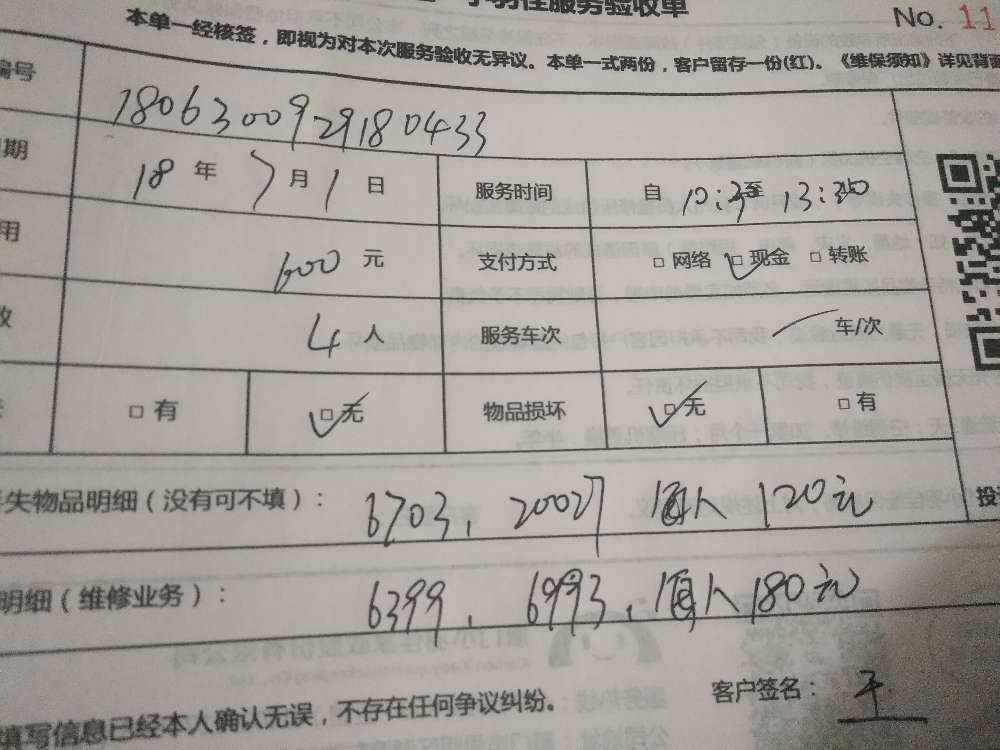 小羽佳服务验收单
No. 11
本单一经核签，即视为对本次服务验收无异议。本单一式两份，客户留存一份(红)。《维保须知》详见背面
编号 1806300929180433
期 18 年 7 月 1 日 服务时间 自 10:30 至 13:30
用 600 元 支付方式 □ 网络 □ 现金 □ 转账
数 4 人 服务车次 车/次
□ 有 □ 无 物品损坏 □ 无 □ 有
失物品明细（没有可不填）： 6703, 20027 值人 120元
投
明细（维修业务）： 6399, 6993, 值人 180元
填写信息已经本人确认无误，不存在任何争议纠纷。 客户签名：